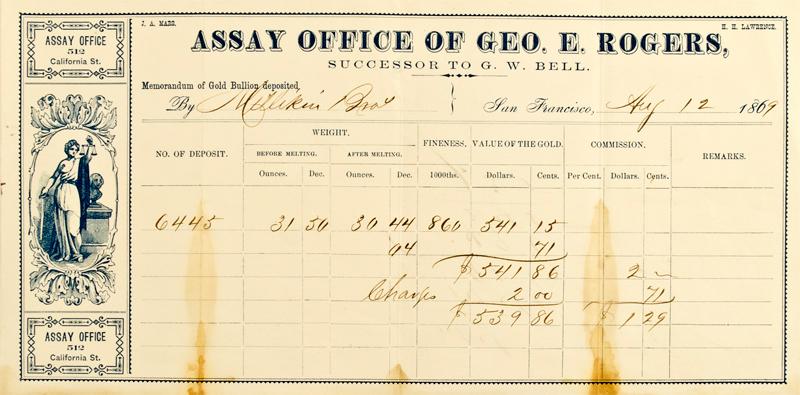 ASSAY OFFICE
512
California St.
J. A. MARS.
H. H. LAWRENCE.
ASSAY OFFICE OF GEO. E. ROGERS,
SUCCESSOR TO G. W. BELL.
Memorandum of Gold Bullion deposited
By Millikin Bros
San Francisco, Aug 12 1869
NO. OF DEPOSIT. WEIGHT. FINENESS, VALUE OF THE GOLD. COMMISSION. REMARKS.
BEFORE MELTING. AFTER MELTING.
Ounces. Dec. Ounces. Dec. 1000ths. Dollars. Cents. Per Cent. Dollars. Cents.
6445 31 50 30 44 860 541 15
04 71
$ 541 86 2 ~
Charges 2 00 71
$ 539 86 $ 1 29
ASSAY OFFICE
512
California St.